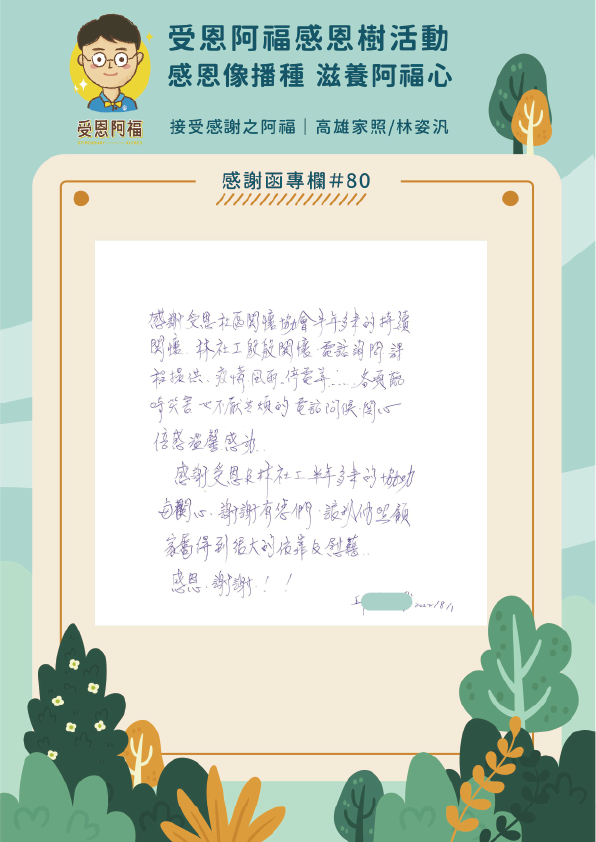 受恩阿福感恩樹活動
感恩像播種 滋養阿福心
受恩阿福
接受感謝之阿福｜高雄家照/林姿汎
感謝函專欄#80
感謝受恩社區關懷協會半年多來的持續
關懷.林社工殷殷關懷.電話詢問課
程提供.疫情.風雨.停電等……各項臨
時災害也不厭其煩的電話問候.關心
倍感溫馨感動..
感謝受恩及林社工半年多來的協助
與關心.謝謝有您們.讓我們照顧
家屬得到很大的依靠及慰藉..
感恩.謝謝.！！
2022/8/1